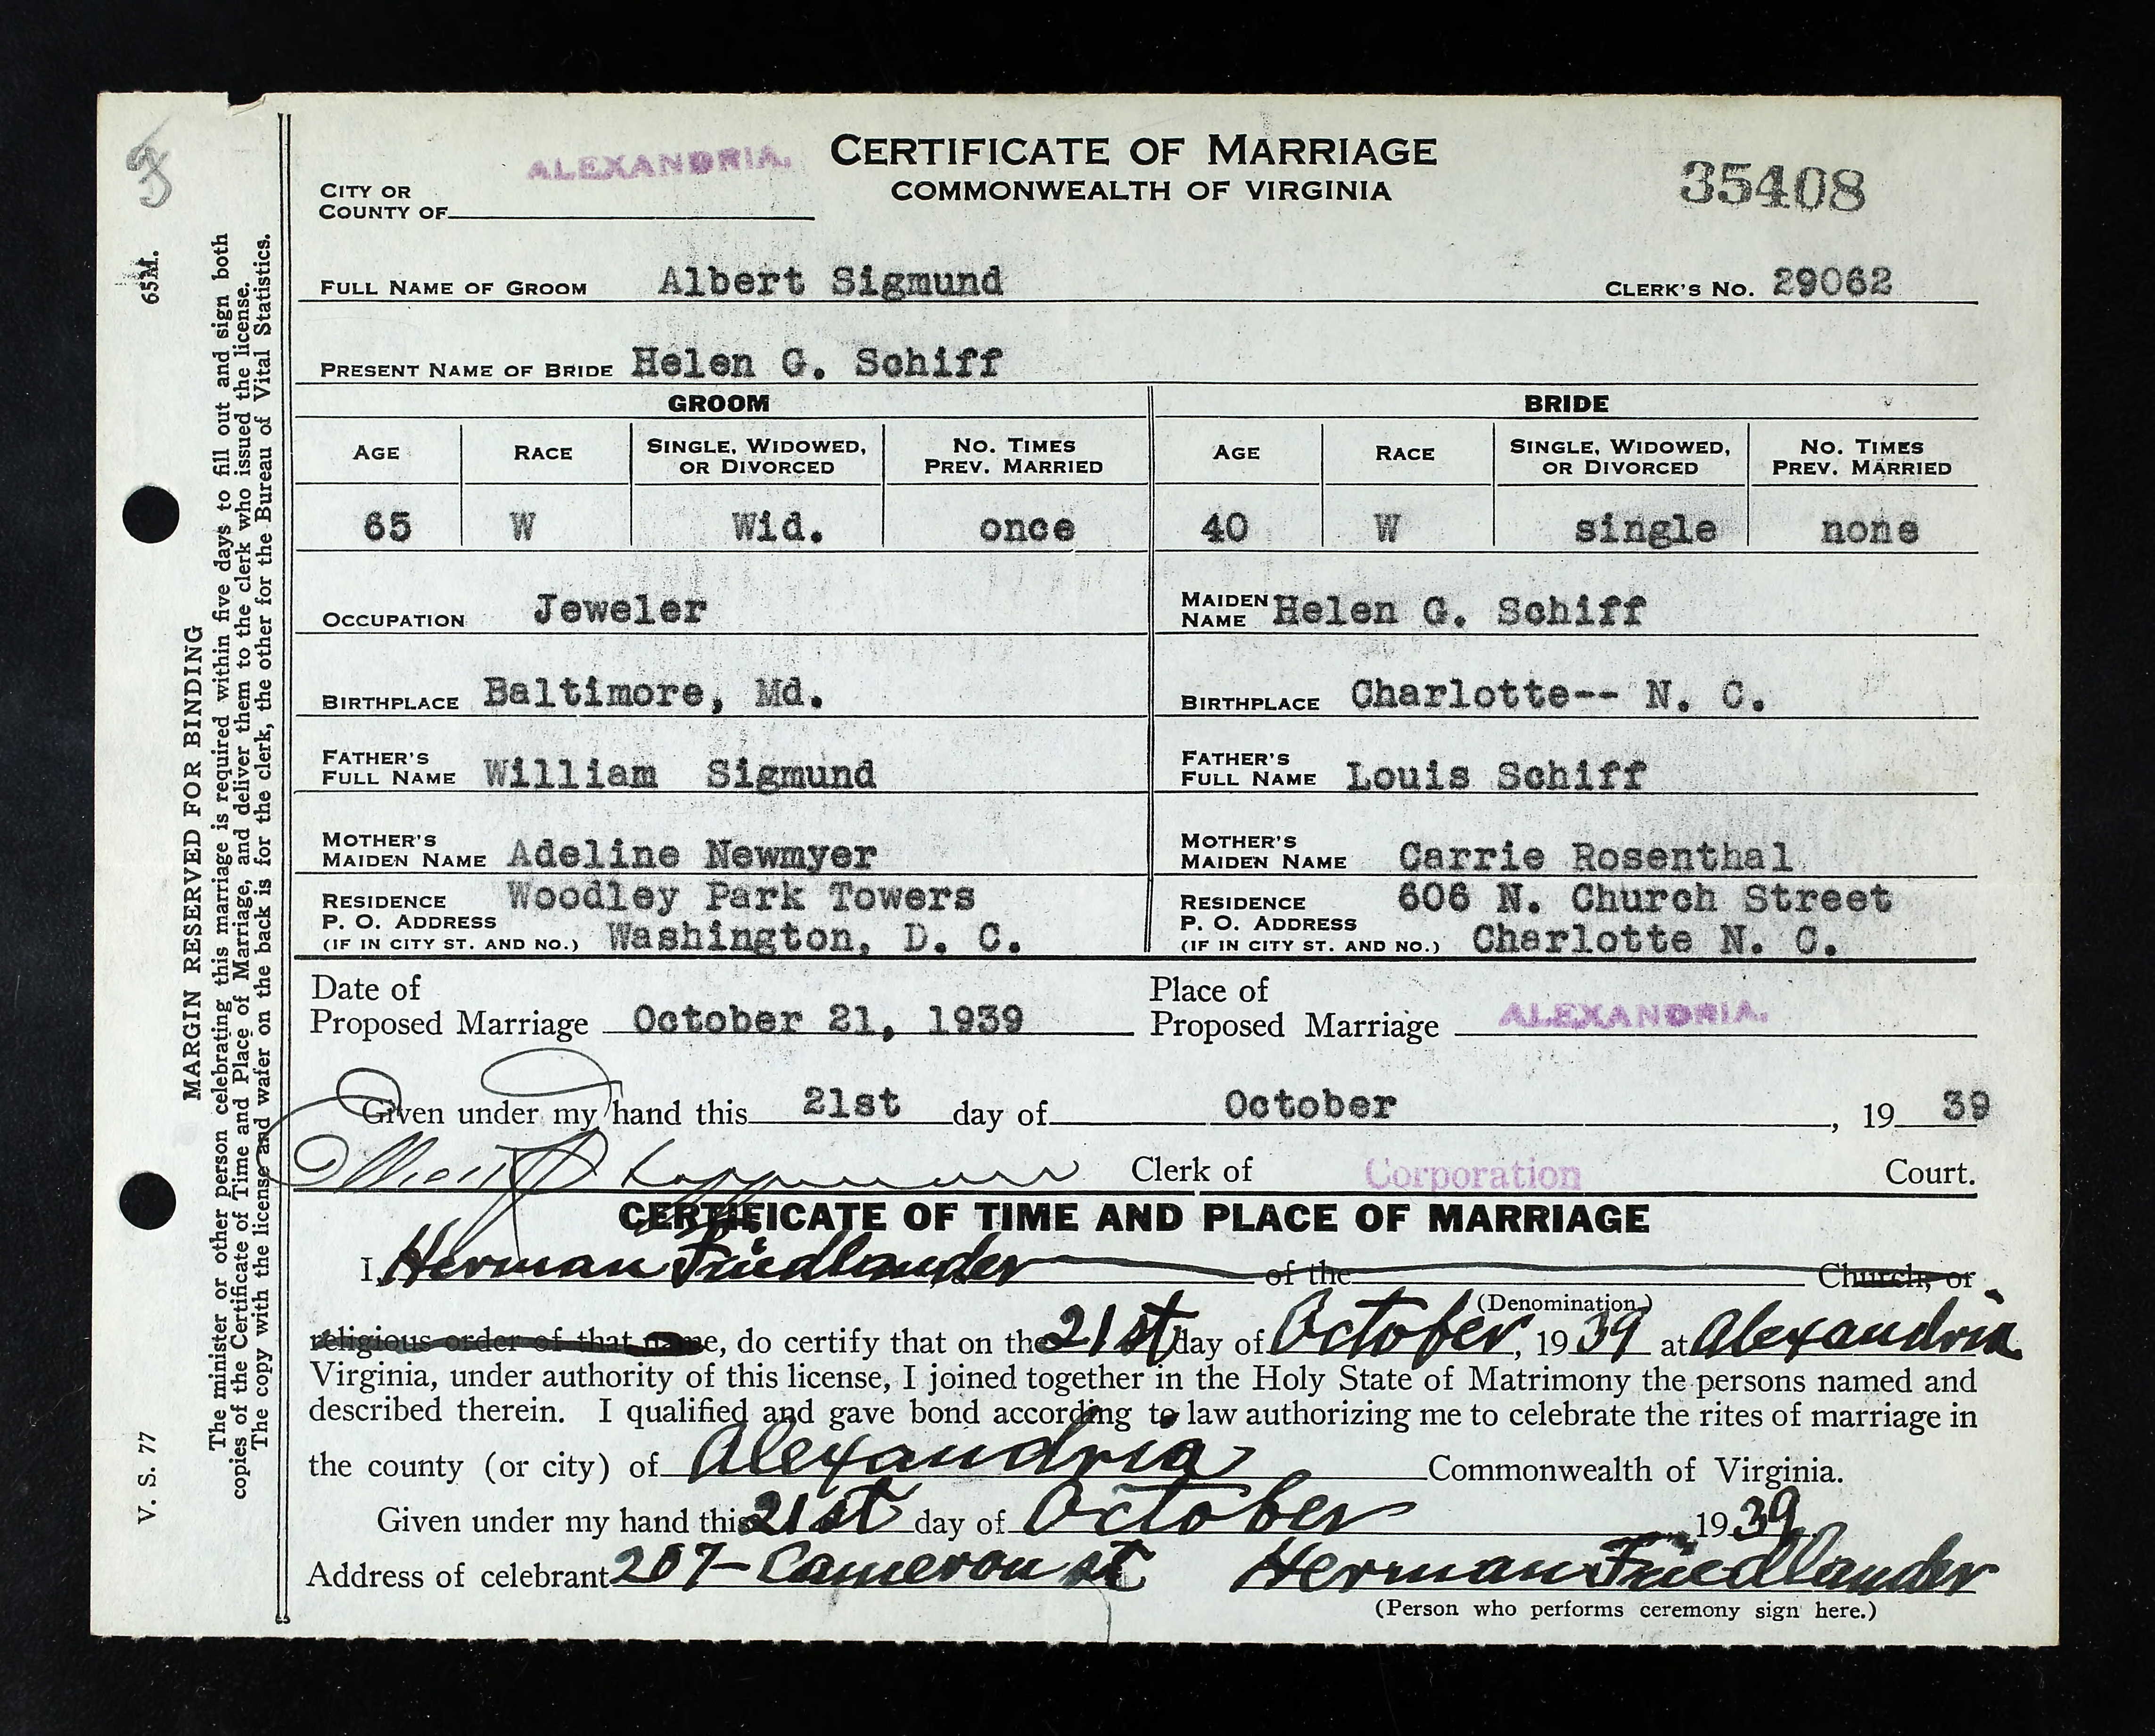 ALEXANDRIA.
CERTIFICATE OF MARRIAGE
COMMONWEALTH OF VIRGINIA
35408
CITY OR
COUNTY OF
FULL NAME OF GROOM Albert Sigmund CLERK'S NO. 29062
PRESENT NAME OF BRIDE Helen G. Schiff
GROOM BRIDE
AGE RACE SINGLE, WIDOWED, OR DIVORCED NO. TIMES PREV. MARRIED AGE RACE SINGLE, WIDOWED, OR DIVORCED NO. TIMES PREV. MARRIED
65 W Wid. once 40 W single none
OCCUPATION Jeweler MAIDEN NAME Helen G. Schiff
BIRTHPLACE Baltimore, Md. BIRTHPLACE Charlotte-- N. C.
FATHER'S FULL NAME William Sigmund FATHER'S FULL NAME Louis Schiff
MOTHER'S MAIDEN NAME Adeline Newmyer MOTHER'S MAIDEN NAME Carrie Rosenthal
RESIDENCE Woodley Park Towers RESIDENCE 606 N. Church Street
P. O. ADDRESS P. O. ADDRESS
(IF IN CITY ST. AND NO.) Washington, D. C. (IF IN CITY ST. AND NO.) Charlotte N. C.
Date of Proposed Marriage October 21, 1939 Place of Proposed Marriage ALEXANDRIA.
Given under my hand this 21st day of October, 19 39
Clerk of Corporation Court.
CERTIFICATE OF TIME AND PLACE OF MARRIAGE
I, Herman Friedlander of the Church, or
(Denomination)
religious order of that name, do certify that on the 21st day of October, 1939 at Alexandria
Virginia, under authority of this license, I joined together in the Holy State of Matrimony the persons named and
described therein. I qualified and gave bond according to law authorizing me to celebrate the rites of marriage in
the county (or city) of Alexandria Commonwealth of Virginia.
Given under my hand this 21st day of October 1939
Address of celebrant 207- Cameron st Herman Friedlander
(Person who performs ceremony sign here.)
65M.
V. S. 77
MARGIN RESERVED FOR BINDING
The minister or other person celebrating this marriage is required within five days to fill out and sign both
copies of the Certificate of Time and Place of Marriage, and deliver them to the clerk who issued the license.
The copy with the license and wafer on the back is for the clerk, the other for the Bureau of Vital Statistics.